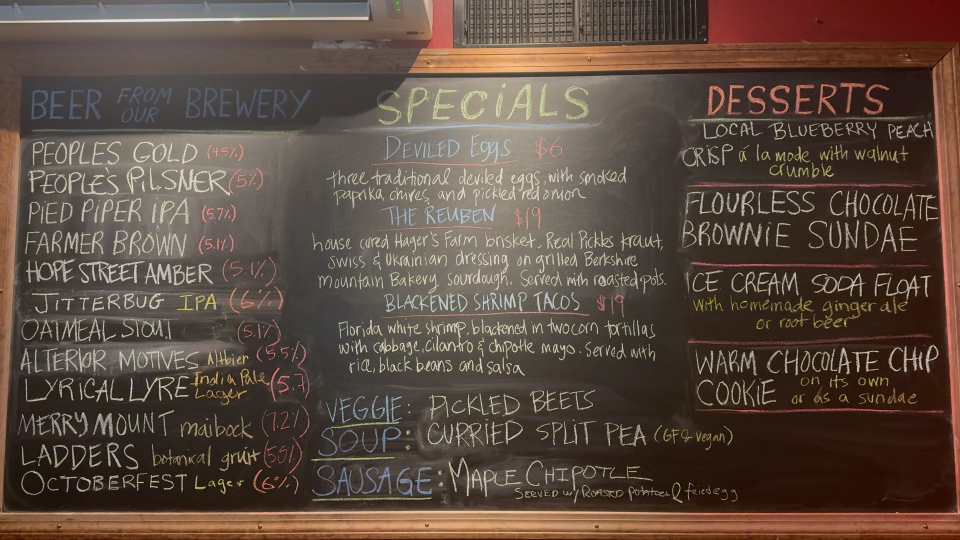 BEER FROM OUR BREWERY
PEOPLES GOLD (4.5%)
PEOPLE'S PILSNER (5%)
PIED PIPER IPA (5.7%)
FARMER BROWN (5.1%)
HOPE STREET AMBER (5.1%)
JITTERBUG IPA (6%)
OATMEAL STOUT (5.1%)
ALTERIOR MOTIVES Altbier (5.5%)
LYRICAL LYRE India Pale Lager (5.7)
MERRY MOUNT maibock (7.2%)
LADDERS botanical gruit (5.5%)
OCTOBERFEST Lager (6%)
SPECIALS
DEVILED EGGS $6
three traditional deviled eggs, with smoked
paprika, chives, and pickled red onion
THE REUBEN $19
house cured Hager's Farm brisket, Real Pickles kraut,
swiss & Ukrainian dressing on grilled Berkshire
mountain Bakery sourdough. Served with roasted pots.
BLACKENED SHRIMP TACOS $19
Florida white shrimp, blackened in two corn tortillas
with cabbage, cilantro & chipotle mayo. Served with
rice, black beans and salsa
VEGGIE: PICKLED BEETS
SOUP: CURRIED SPLIT PEA (GF & vegan)
SAUSAGE: MAPLE CHIPOTLE
SERVED W/ ROASTED potatoes & fried egg
DESSERTS
LOCAL BLUEBERRY PEACH
CRISP á la mode with walnut
crumble
FLOURLESS CHOCOLATE
BROWNIE SUNDAE
ICE CREAM SODA FLOAT
with homemade ginger ale
or root beer
WARM CHOCOLATE CHIP
COOKIE on its own
or as a sundae